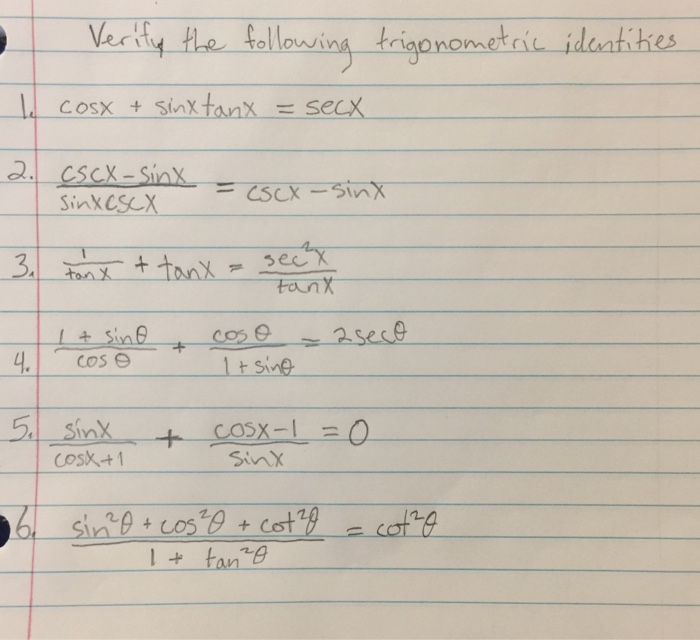 Verify the following trigonometric identities
1. cosx + sinxtanx = secx
2. (cscx - sinx)/(sinxcscx) = cscx - sinx
3. 1/tanx + tanx = sec²x/tanx
4. (1 + sinθ)/cosθ + cosθ/(1 + sinθ) = 2secθ
5. sinx/(cosx+1) + (cosx-1)/sinx = 0
6. (sin²θ + cos²θ + cot²θ)/(1 + tan²θ) = cot²θ